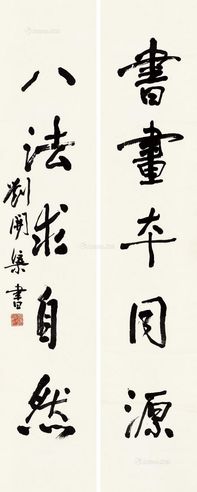 書畫本同源
八法求自然
劉開渠書